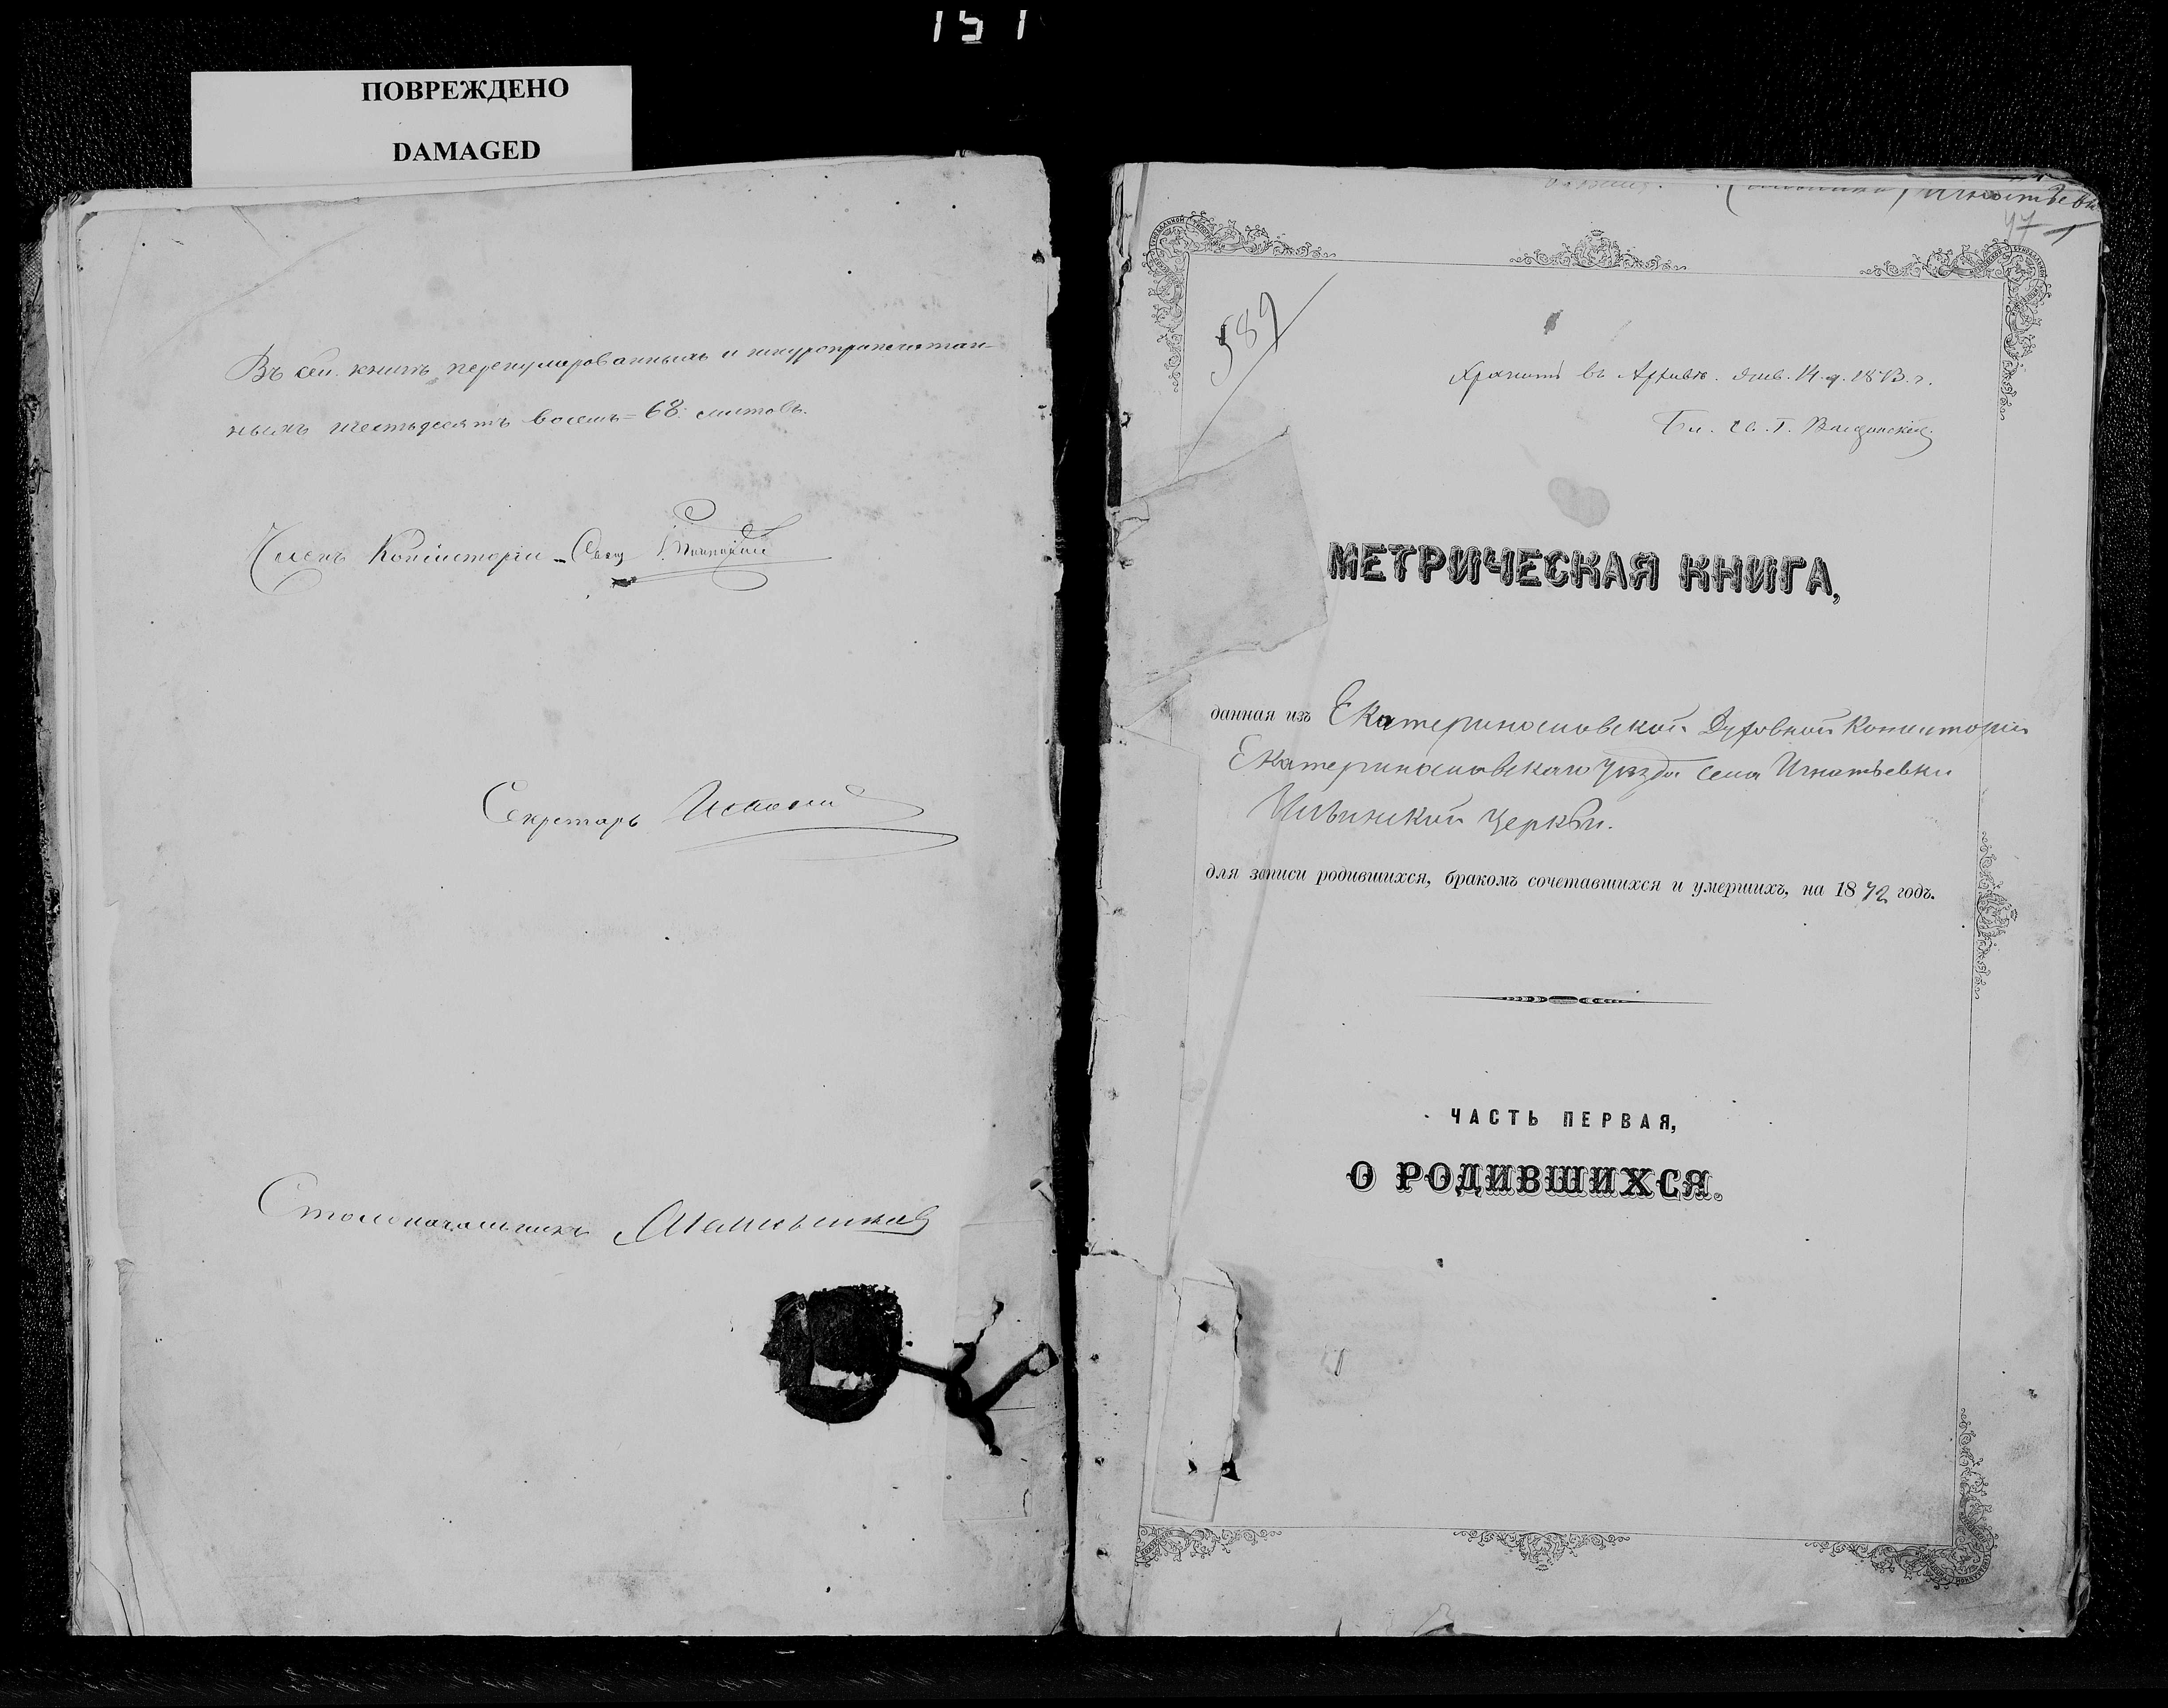 151
ПОВРЕЖДЕНО
DAMAGED
Въ сей книгѣ перенумерованныхъ и шнуроприпечатан-
ныхъ шестьдесятъ восемь = 68. листовъ.
Членъ Консисторіи Свящ
Секретарь
Столоначальникъ
Игнатьевк
47
589
Хранить въ Архивѣ. Янв. 14 д. 1873. г.
Бл. Св. Г.
МЕТРИЧЕСКАЯ КНИГА,
данная изъ Екатеринославской Духовной Консисторіи
Екатеринославскаго уѣзда села Игнатьевки
Ильинской Церкви.
для записи родившихся, бракомъ сочетавшихся и умершихъ, на 1872 годъ.
ЧАСТЬ ПЕРВАЯ,
О РОДИВШИХСЯ.